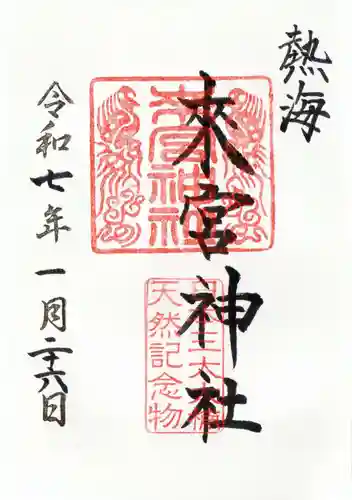 熱海
來宮神社
來宮神社
日本三大大楠
天然記念物
令和七年一月二十六日